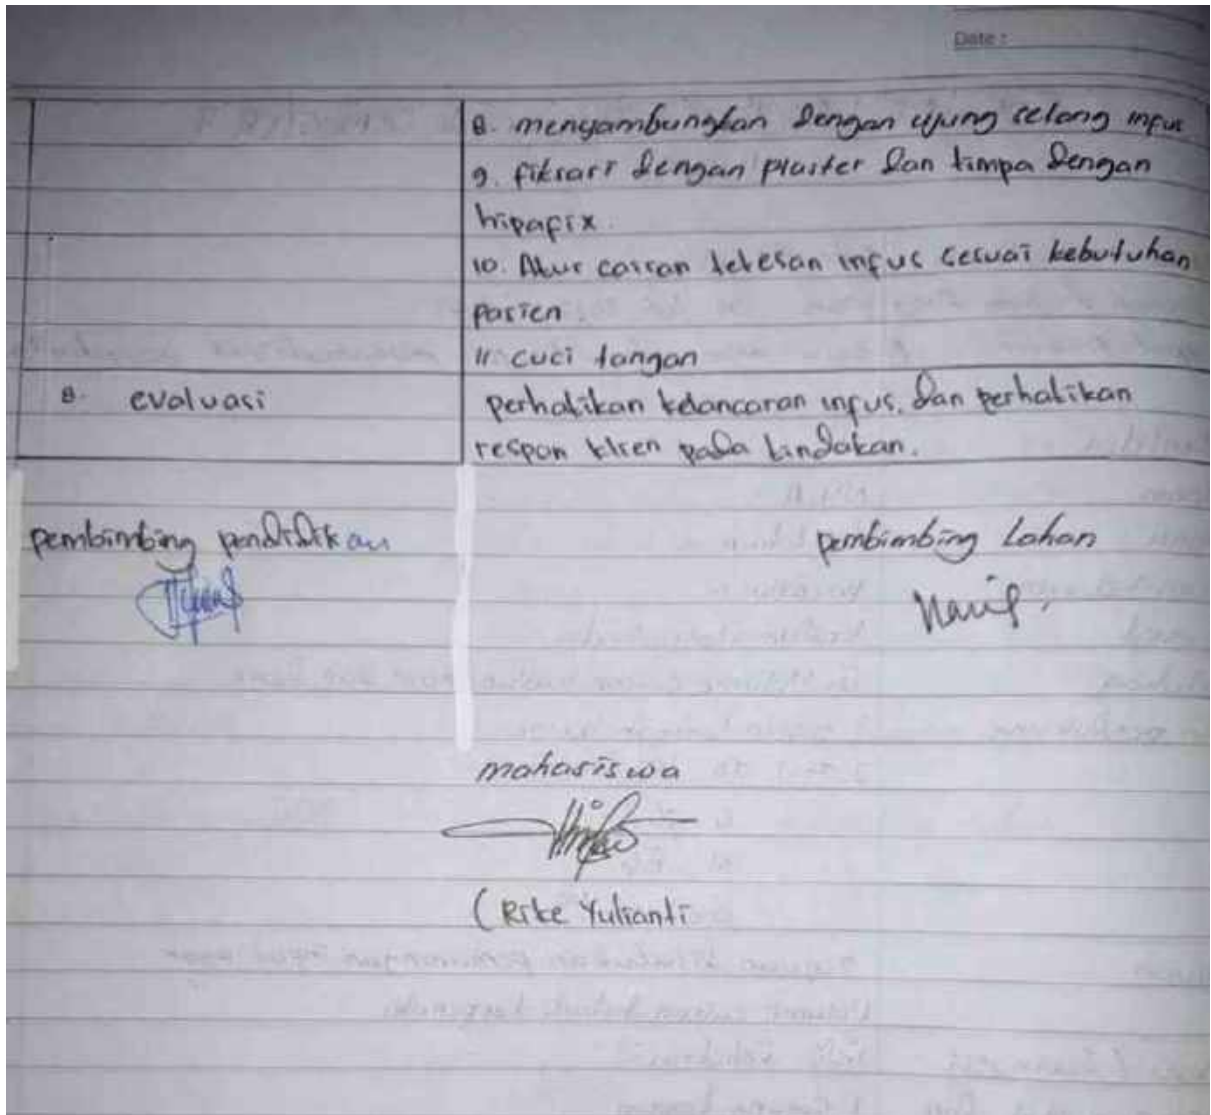 Date :
8. menyambungkan dengan ujung selang infus
9. fiksasi dengan plaster dan timpa dengan
hipafix.
10. Atur cairan tetesan infus sesuai kebutuhan
pasien.
11. cuci tangan
8. evaluasi
perhatikan kelancaran infus, dan perhatikan
respon klien pada tindakan.
pembimbing pendidikan
pembimbing Lahan
mahasiswa
( Rike Yulianti